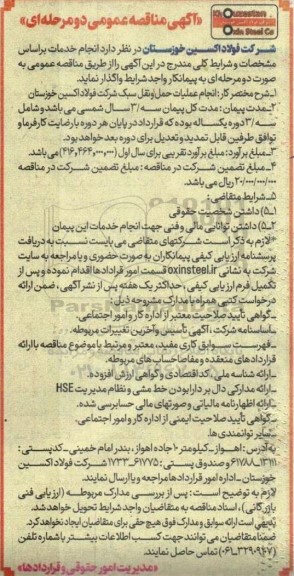 Khouzestan
Oxin Steel Co
«آگهی مناقصه عمومی دو مرحله‌ای»
شرکت فولاد اکسین خوزستان در نظر دارد انجام خدمات براساس
مشخصات و شرایط کلی مندرج در این آگهی را از طریق مناقصه عمومی به
صورت دو مرحله‌ای به پیمانکار واجد شرایط واگذار نماید.
۱ـ شرح مختصر کار: انجام عملیات حمل و نقل سبک شرکت فولاد اکسین خوزستان
۲ـ مدت پیمان: مدت کل پیمان سه/۳ سال شمسی می باشد و شامل
سه/۳ دوره یکساله بوده که قرارداد در پایان هر دوره با رضایت کارفرما و
توافق طرفین قابل تمدید و تعدیل برای دوره بعد خواهد بود.
۳ـ مبلغ برآورد: مبلغ برآورد تقریبی برای سال اول (۴۱۶،۴۶۴،۰۰۰،۰۰۰) می باشد.
۴ـ مبلغ تضمین شرکت در مناقصه: مبلغ تضمین شرکت در مناقصه
۲۰/۰۰۰/۰۰۰/۰۰۰ ریال می باشد.
۵ـ شرایط متقاضی:
۵ـ۱) داشتن شخصیت حقوقی
۵ـ۲) داشتن توانایی مالی و فنی جهت انجام خدمات این پیمان
*لازم به ذکر است شرکتهای متقاضی می بایست نسبت به دریافت
پرسشنامه ارزیابی کیفی پیمانکاران به صورت حضوری و یا مراجعه به سایت
شرکت به نشانی oxinsteel.ir قسمت امور قراردادها اقدام نموده و پس از
تکمیل فرم ارزیابی کیفی، حداکثر یک هفته پس از نشر آگهی، ضمن ارائه
درخواست کتبی همراه با مدارک مشروحه ذیل:
ـ گواهی تأیید صلاحیت معتبر از اداره کار و امور اجتماعی.
ـ اساسنامه شرکت، آگهی تأسیس و آخرین تغییرات مربوطه.
ـ فهرست سوابق کاری مفید، معتبر و مرتبط با موضوع مناقصه با ارائه
قراردادهای منعقده و مفاصاحساب‌های مربوطه.
ـ ارائه شناسه ملی، کد اقتصادی و گواهی ارزش افزوده.
ـ ارائه مدارکی دال بر دارا بودن خط مشی و نظام مدیریت HSE
ـ ارائه اظهارنامه مالیاتی و صورتهای مالی حسابرسی شده.
ـ گواهی تأیید صلاحیت ایمنی از اداره کار و امور اجتماعی.
ـ سایر توانمندی‌ها.
به آدرس: اهواز ـ کیلومتر ۱۰ جاده اهواز، بندر امام خمینی ـ کدپستی:
۶۱۷۸۸ـ۱۳۱۱۱ و صندوق پستی: ۶۱۷۷۵ـ۱۷۳۳ شرکت فولاد اکسین
خوزستان ـ اداره امور قراردادها مراجعه و یا ارسال نمایند.
لازم به توضیح است: پس از بررسی مدارک مربوطه (ارزیابی فنی
بازرگانی)، اسناد مناقصه به متقاضیان واجد شرایط تحویل خواهد شد.
بدیهی است ارائه سوابق و مدارک فوق هیچ حقی برای متقاضیان ایجاد نخواهد کرد.
ضمنا متقاضیان می توانند جهت کسب اطلاعات بیشتر با شماره تلفن
(۳۲۹۰۹۶۴۷ـ۰۶۱) تماس حاصل نمایند.
«مدیریت امور حقوقی و قراردادها»